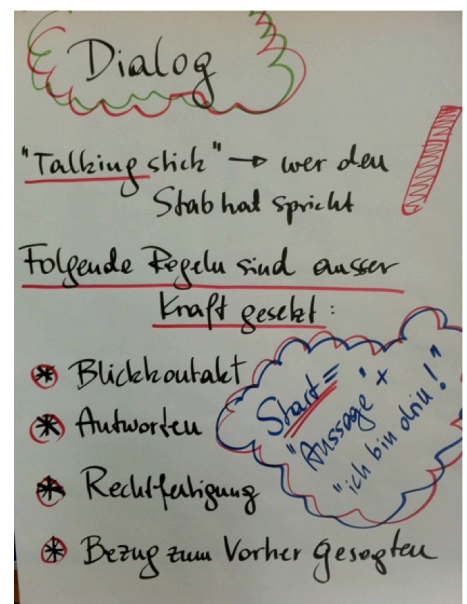 Dialog
"Talking stick" → wer den
Stab hat spricht
Folgende Regeln sind ausser
Kraft gesetzt:
* Blickkontakt
* Antworten
* Rechtfertigung
* Bezug zum Vorher gesagten
Start=
"Aussage" +
"ich bin drin!"